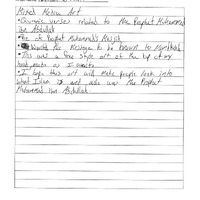 Mixed Media Art
•Quranic verses related to the Prophet Muhammed
ibn Abdullah
•Pic of Prophet Muhammed's Masjid
• Wanted the message to be known to Mankind
•This was a free style art off the top of my
head, made as I went
•I hope this art will make people look into
what Islam is and who was the Prophet
Muhammed ibn Abdullah